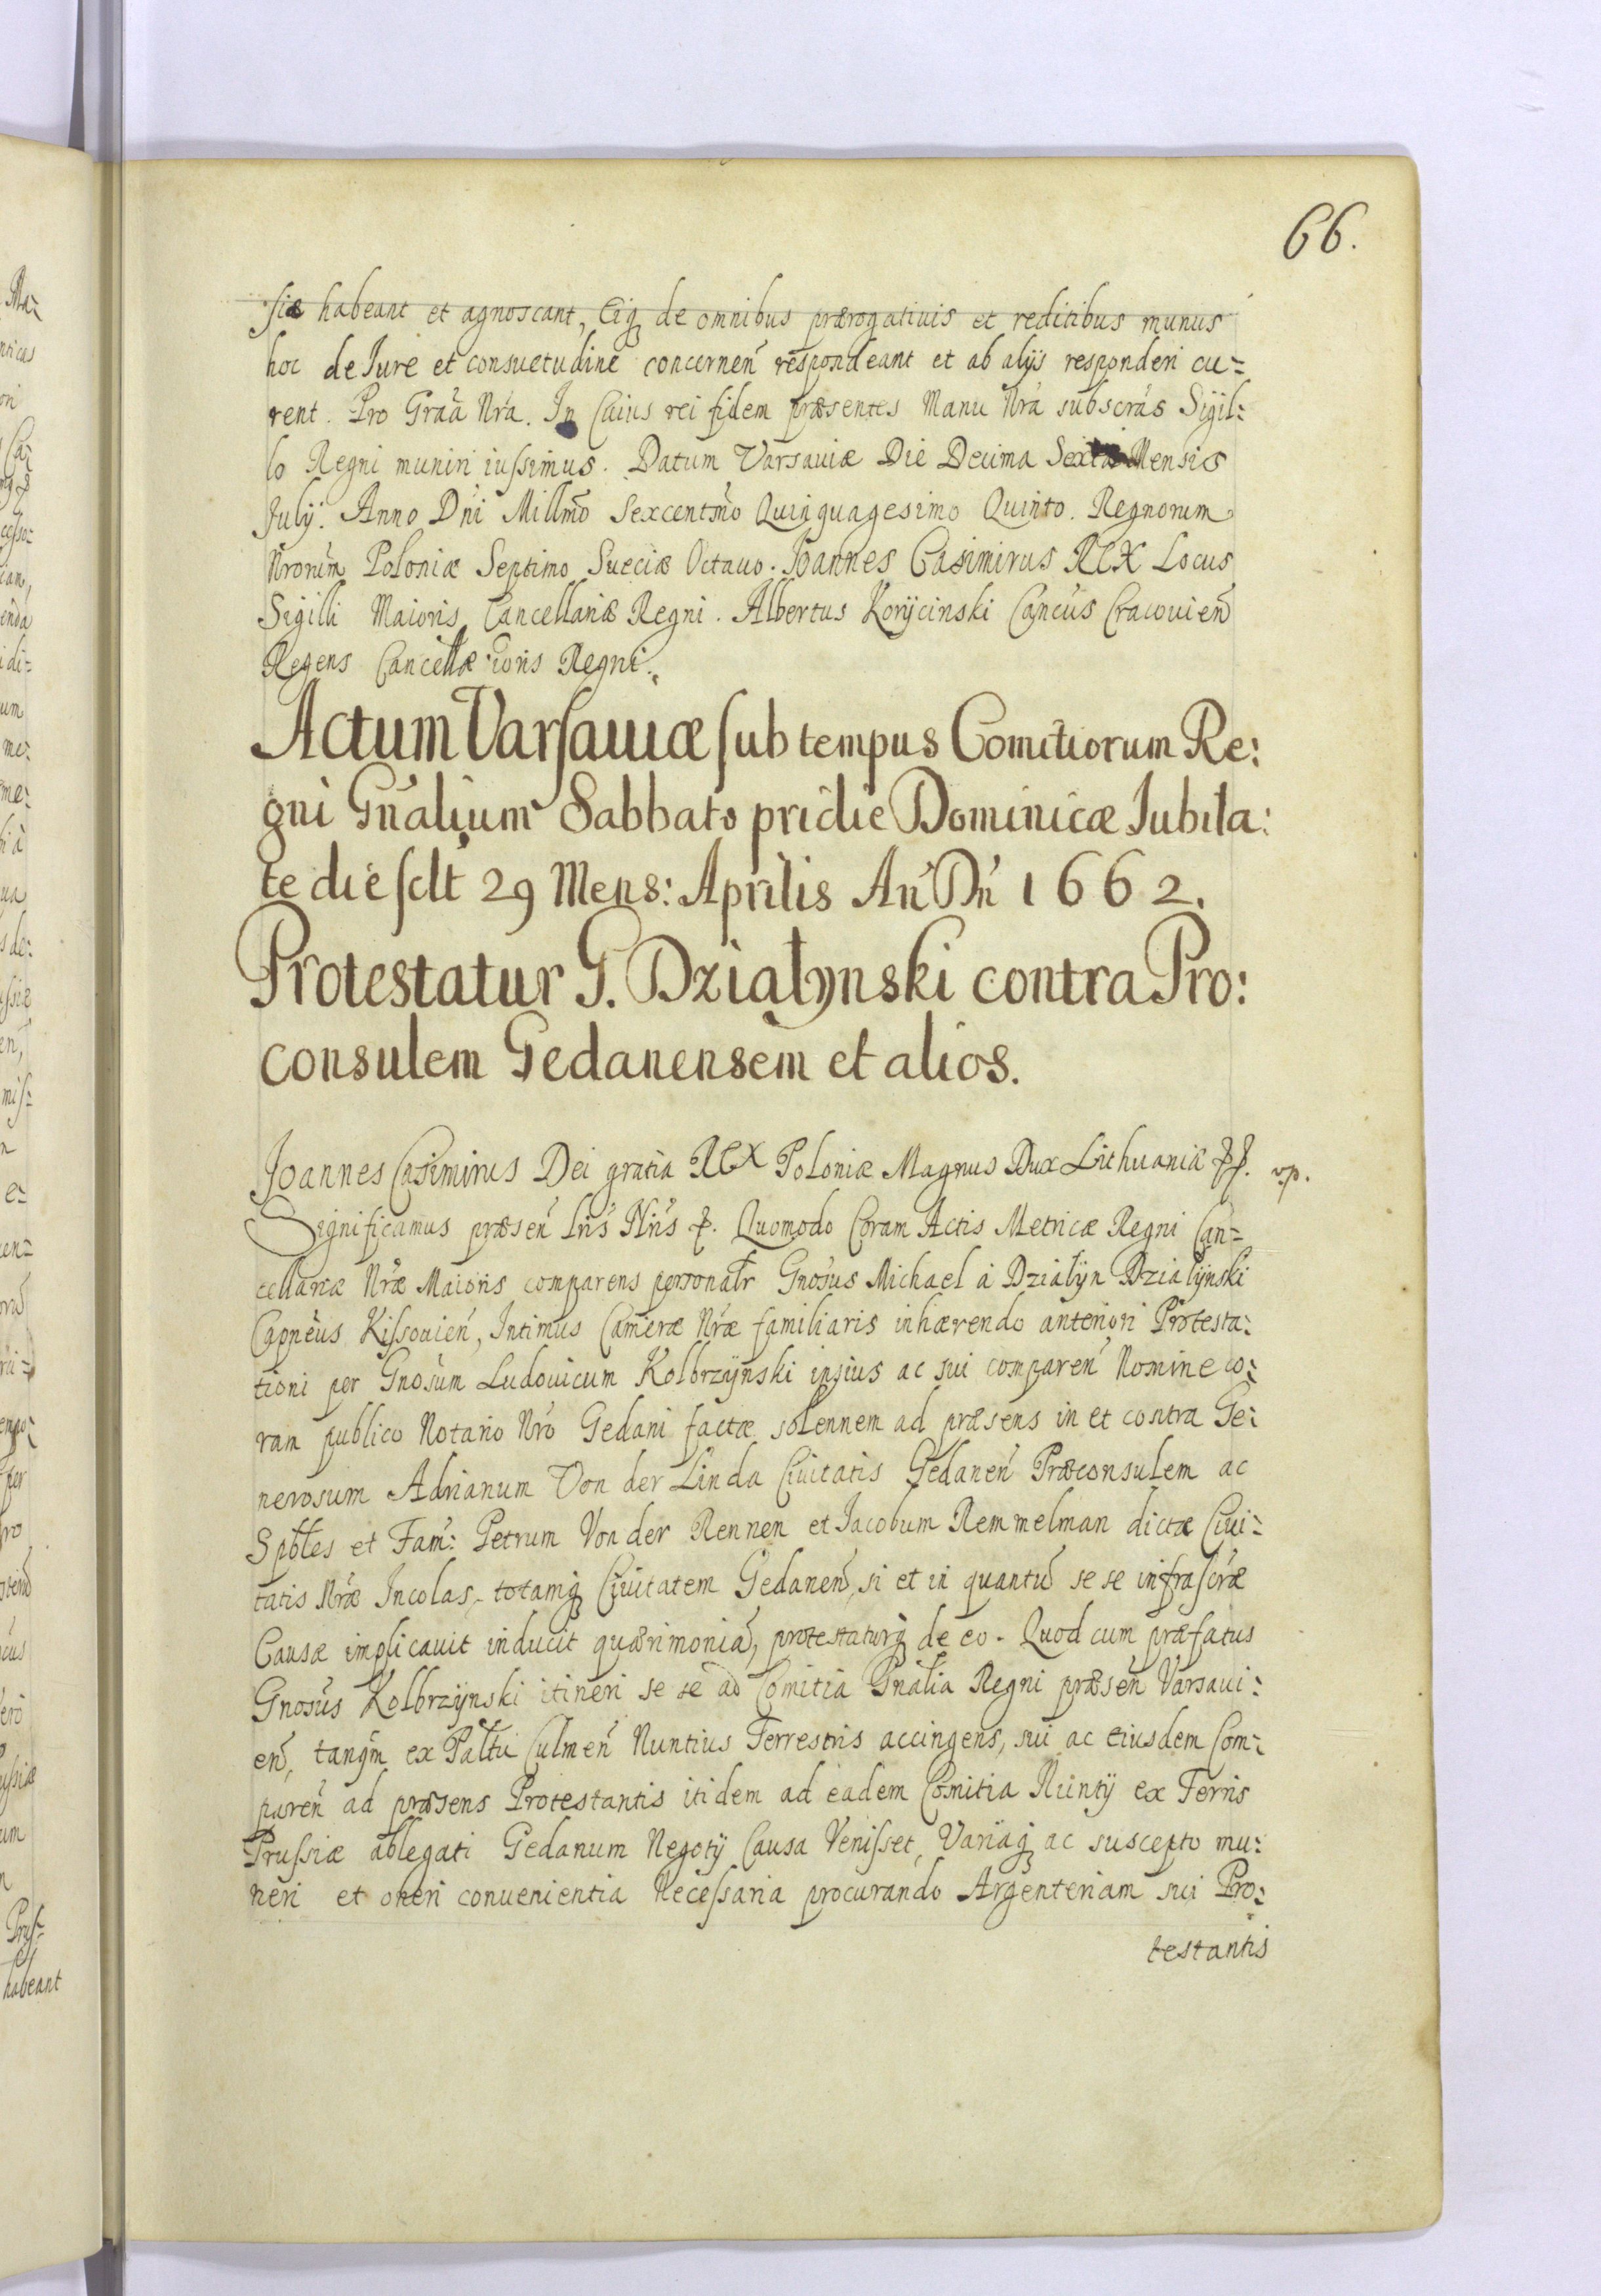 66.
siæ habeant et agnoscant, Eiq de omnibus prærogativis et reditibus munus
hoc de Iure et consuetudine concernen̄ respondeant et ab alijs responderi cu=
rent. Pro Graā Nrā. In Cuius rei fidem præsentes Manu Nrā subscrās Sigil:
lo Regni muniri iussimus. Datum Varsaviæ Die Decima Sexta Mensis
July. Anno Dn̄i Millm̄o Sexcentm̄o Quinquagesimo Quinto. Regnorum
Nrorum̄ Poloniæ Septimo Sueciæ Octauo. Joannes Casimirus REX Locus
Sigilli Maioris Cancellariæ Regni. Albertus Korijcinski Cancūs Cracouien̄
Regens Cancellæ ioris Regni.
Actum Varsauiæ sub tempus Comitiorum Re:
gni Gn̄alium Sabbato pridie Dominicæ Iubila:
te die sclt 29 Mens: Aprilis An̄ Dn̄ 1662.
Protestatur G. Dzialynski contra Pro:
consulem Gedanensem et alios.
Joannes Casimirus Dei gratia REX Poloniæ Magnus Dux Lithuaniæ pp. vp.
Significamus præsen̄ Lrīs Nrīs p. Quomodo Coram Actis Metricæ Regni Can=
cellariæ Nræ Maioris comparens personalr Gnosus Michael à Dzialijn Dzialijnski
Cappnēus Kissouien̄, Intimus Cameræ Nræ familiaris inhærendo anteriori Protesta:
tioni per Gnosum Ludouicum Kolbrzijnski ipsius ac sui comparen̄ Nomine co:
ram publico Notario Nrō Gedani factæ solennem ad præsens in et contra Ge:
nerosum Adrianum Von der Linda Ciuitatis Gedanen̄ Præconsulem ac
Spbles et Fam: Petrum Von der Rennen et Jacobum Remmelman dictæ Ciui:
tatis Nræ Incolas, totamq Ciuitatem Gedanen̄, si et in quantū se se infrascræ
Causæ implicauit inducit quærimoniā, protestaturq de eo. Quod cum præfatus
Gnosus Kolbrzijnski itineri se se ad Comitia Gnalia Regni præsen̄ Varsaui:
en̄, tanqm ex Paltu Culmen̄ Nuntius Terrestris accingens, sui ac eiusdem Com:
paren̄ ad præsens Protestantis itidem ad eadem Comitia Nuntij ex Terris
Prussiæ ablegati Gedanum Negotij Causa Venisset, Variaq ac suscepto mu:
neri et oneri conuenientia Necessaria procurando Argenteriam sui Pro:
testantis